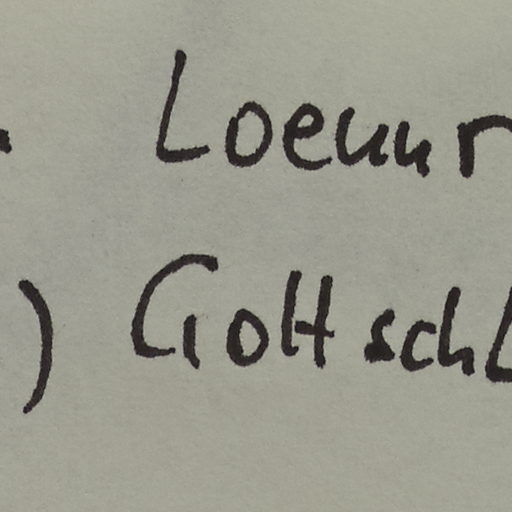 . Loennr
) Gottschl